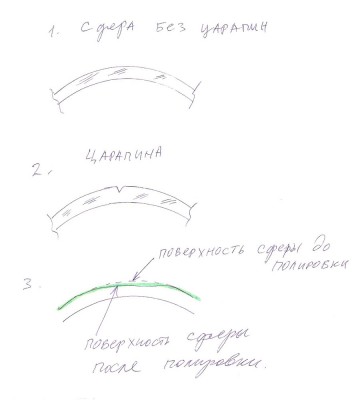 1. СФЕРА БЕЗ ЦАРАПИН
2. ЦАРАПИНА
3.
ПОВЕРХНОСТЬ СФЕРЫ ДО
ПОЛИРОВКИ
ПОВЕРХНОСТЬ СФЕРЫ
ПОСЛЕ ПОЛИРОВКИ.